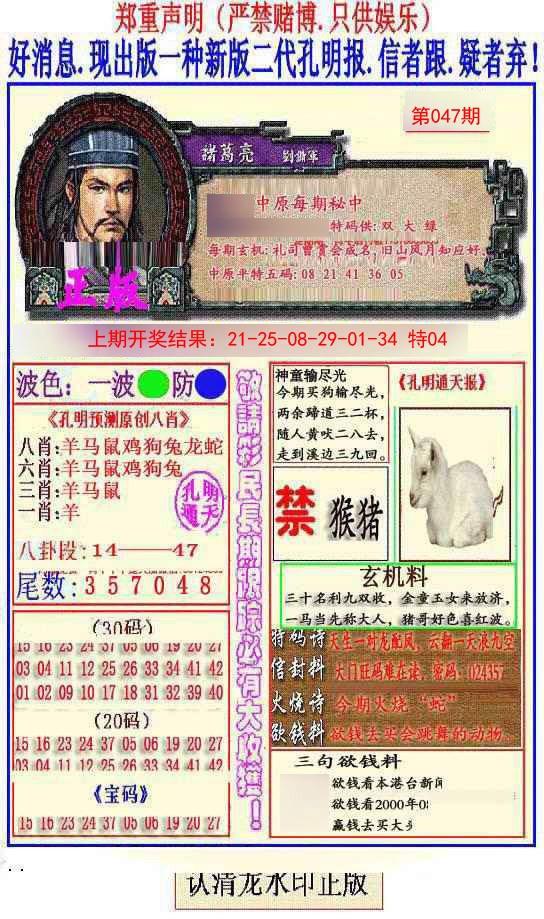 郑重声明（严禁赌博.只供娱乐）
好消息.现出版一种新版二代孔明报.信者跟.疑者弃！
第047期
諸葛亮 劉備軍
中原每期秘中
特码供: 双 大 绿
每期玄机: 礼司曹賓会成名, 旧山风月知应好.
中原平特五码: 08 21 41 36 05
正版
上期开奖结果：21-25-08-29-01-34 特04
波色：一波 防
《孔明预测原创八肖》
八肖:羊马鼠鸡狗兔龙蛇
六肖:羊马鼠鸡狗兔
三肖:羊马鼠
一肖:羊
孔明通天
八卦段:14——47
尾数:357048
(30码)
15 16 23 24 37 05 06 19 20 27
03 04 11 12 25 26 33 34 41 42
01 02 09 10 17 18 31 32 39 40
(20码)
15 16 23 24 37 05 06 19 20 27
03 04 11 12 25 26 33 34 41 42
《宝码》
15 16 23 24 37 05 06 19 20 27
敬請彩民長期跟踪必有大收獲！
神童输尽光
今期买狗输尽光，
两余蹄道三二杯，
随人黄吠二八去，
走到溪边三九回。
《孔明通天报》
禁 猴猪
玄机料
三十名利九双收，金童玉女来放济，
一马当先称大人，猪哥好色喜红波。
特码诗 天生一对龙配凤，云翻一天浪九空
信封料 大门旺码难在读，密码：024357
火烧诗 今期火烧“蛇”
欲钱料 欲钱去买会跳舞的动物.
三句欲钱料
欲钱看本港台新
欲钱看2000年0
赢钱去买大
认清龙水印正版